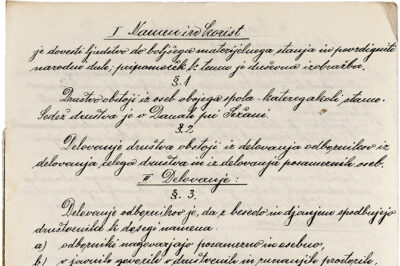 I Namen in Korist
je dovesti ljudstvo do boljšega materijelnega stanja in povzdigniti
narodni duh; pripomoček k temu je duševna izobrazba.
§. 1
Društvo obstoji iz oseb obojega spola kateregakoli stanu.
Sedež društva je v Danah pri Sežani.
§. 2.
Delovanje društva obstoji iz delovanja odbornikov iz
delovanja celega društva in iz delovanja posameznik oseb.
II Delovanje:
§. 3.
Delovanje odbornikov je, da z besedo in djanjem spodbujejo
društvenike k dosegi namena
a) odborniki nagovarjajo posamezno in osebno,
b) v javnih govorih v društvenih in zunanjih prostorih,